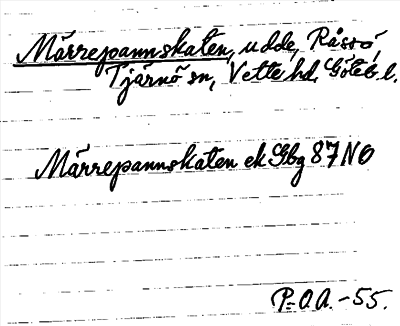 Märrepannskaten, udde, Råssö,
Tjärnö sn, Vette hd. Göteb. l.
Märrepannskaten ek Gbg 87 NO
P-O.A. -55.